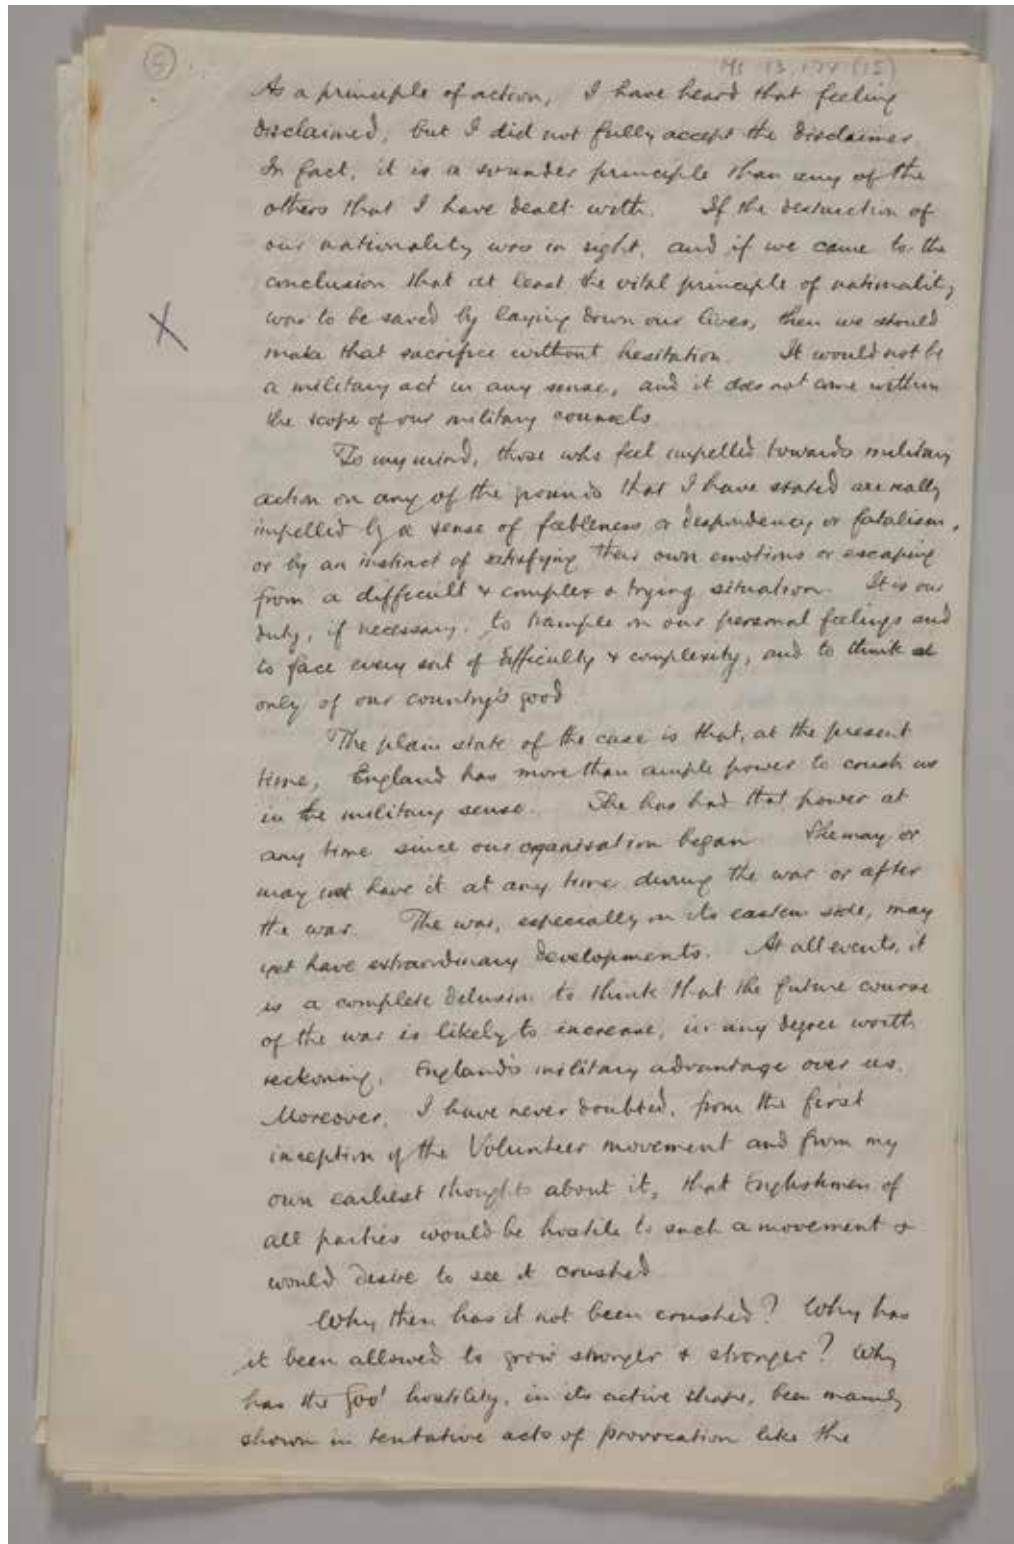 5
MS 13,174 (15)
As a principle of action, I have heard that feeling
disclaimed, but I did not fully accept the disclaimer.
In fact, it is a sounder principle than any of the
others that I have dealt with. If the destruction of
our nationality was in sight, and if we came to the
conclusion that at least the vital principle of nationality
was to be saved by laying down our lives, then we should
make that sacrifice without hesitation. It would not be
a military act in any sense, and it does not come within
the scope of our military counsels
To my mind, those who feel impelled towards military
action on any of the grounds that I have stated are really
impelled by a sense of feebleness or despondency or fatalism,
or by an instinct of satisfying their own emotions or escaping
from a difficult & complex & trying situation. It is our
duty, if necessary, to trample on our personal feelings and
to face every sort of difficulty & complexity, and to think
only of our country's good
The plain state of the case is that, at the present
time, England has more than ample power to crush us
in the military sense. She has had that power at
any time since our organisation began. She may or
may not have it at any time during the war or after
the war. The war, especially on its eastern side, may
yet have extraordinary developments. At all events, it
is a complete delusion to think that the future course
of the war is likely to increase, in any degree worth
reckoning, England's military advantage over us.
Moreover, I have never doubted, from the first
inception of the Volunteer movement and from my
own earliest thoughts about it, that Englishmen of
all parties would be hostile to such a movement &
would desire to see it crushed
Why then has it not been crushed? Why has
it been allowed to grow stronger & stronger? Why
has the Gov' hostility, in its active shape, been mainly
shown in tentative acts of provocation like the